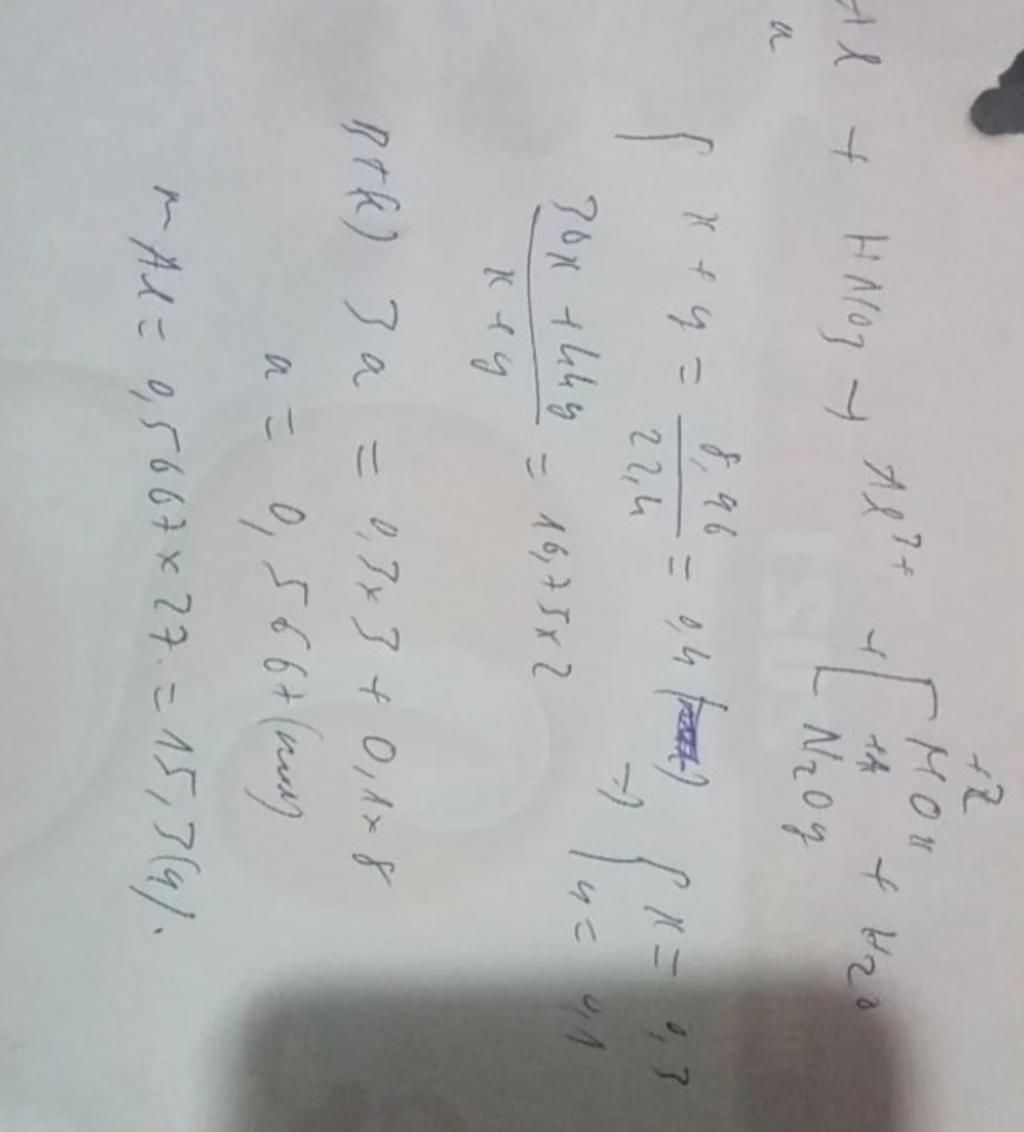 Al + HNO3 → Al3+ + [ NO x + H2O
a
+2
+1
N2O y
{ x + y = 8,96 / 22,4 = 0,4
(30x + 44y) / (x + y) = 16,75 x 2
→ { x = 0,3
y = 0,1
Btk) 3a = 0,3 x 3 + 0,1 x 8
a = 0,5667 (mol)
m Al = 0,5667 x 27 = 15,3 (g).